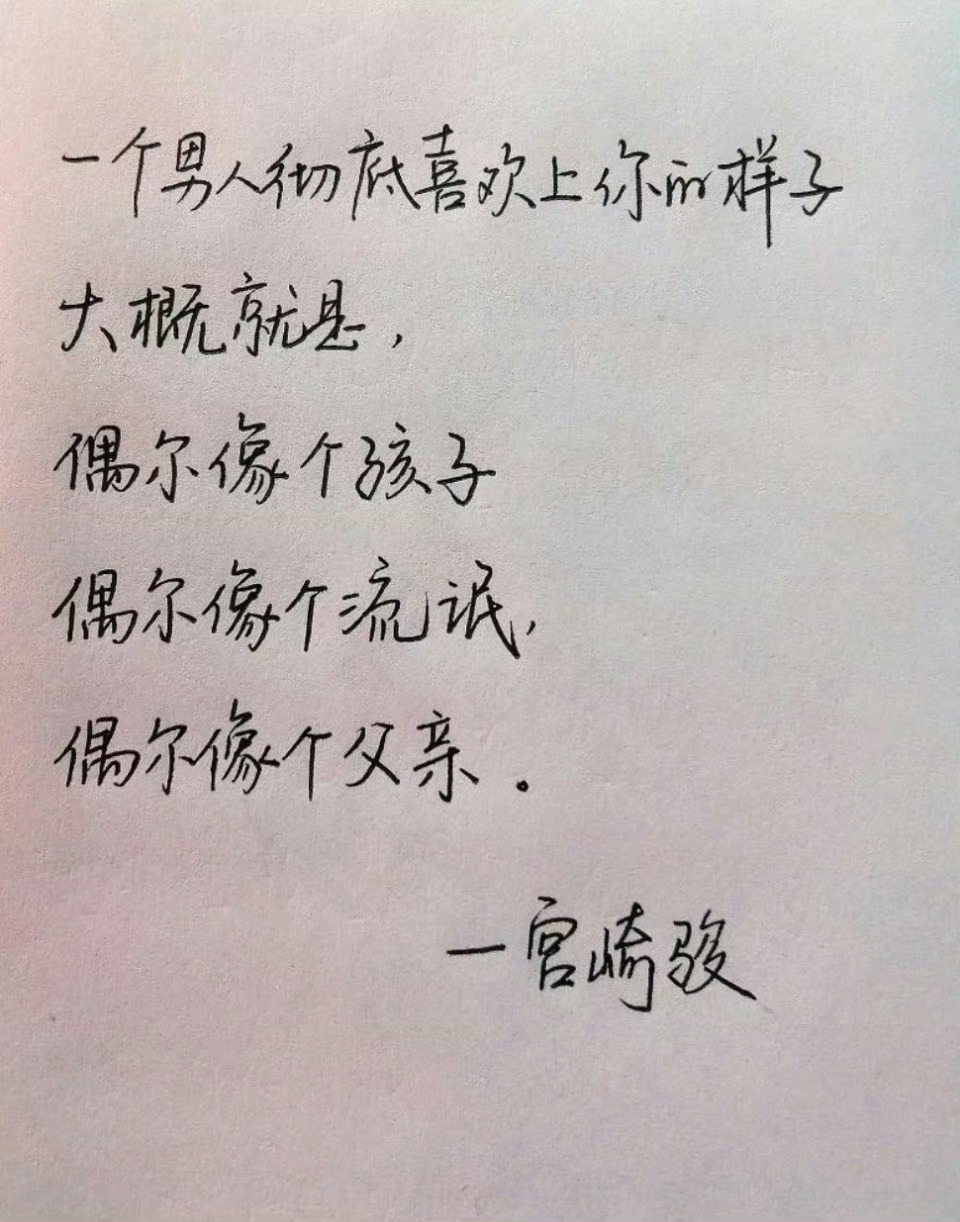 一个男人彻底喜欢上你的样子
大概就是，
偶尔像个孩子
偶尔像个流氓，
偶尔像个父亲。
—宫崎骏